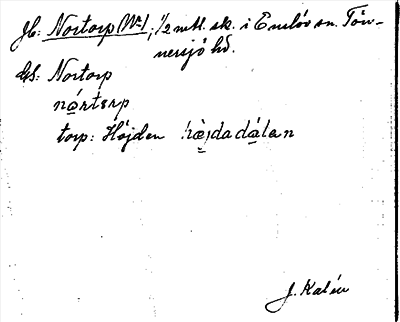 Jb: Nortorp (Nr 1), 1/2 mtl. sk. i Enslöv sn. Tön-
nersjö hd.
GS: Nortorp
nǻrtɵrp
torp: Höjden hæ̀jdadálan
J. Kalén